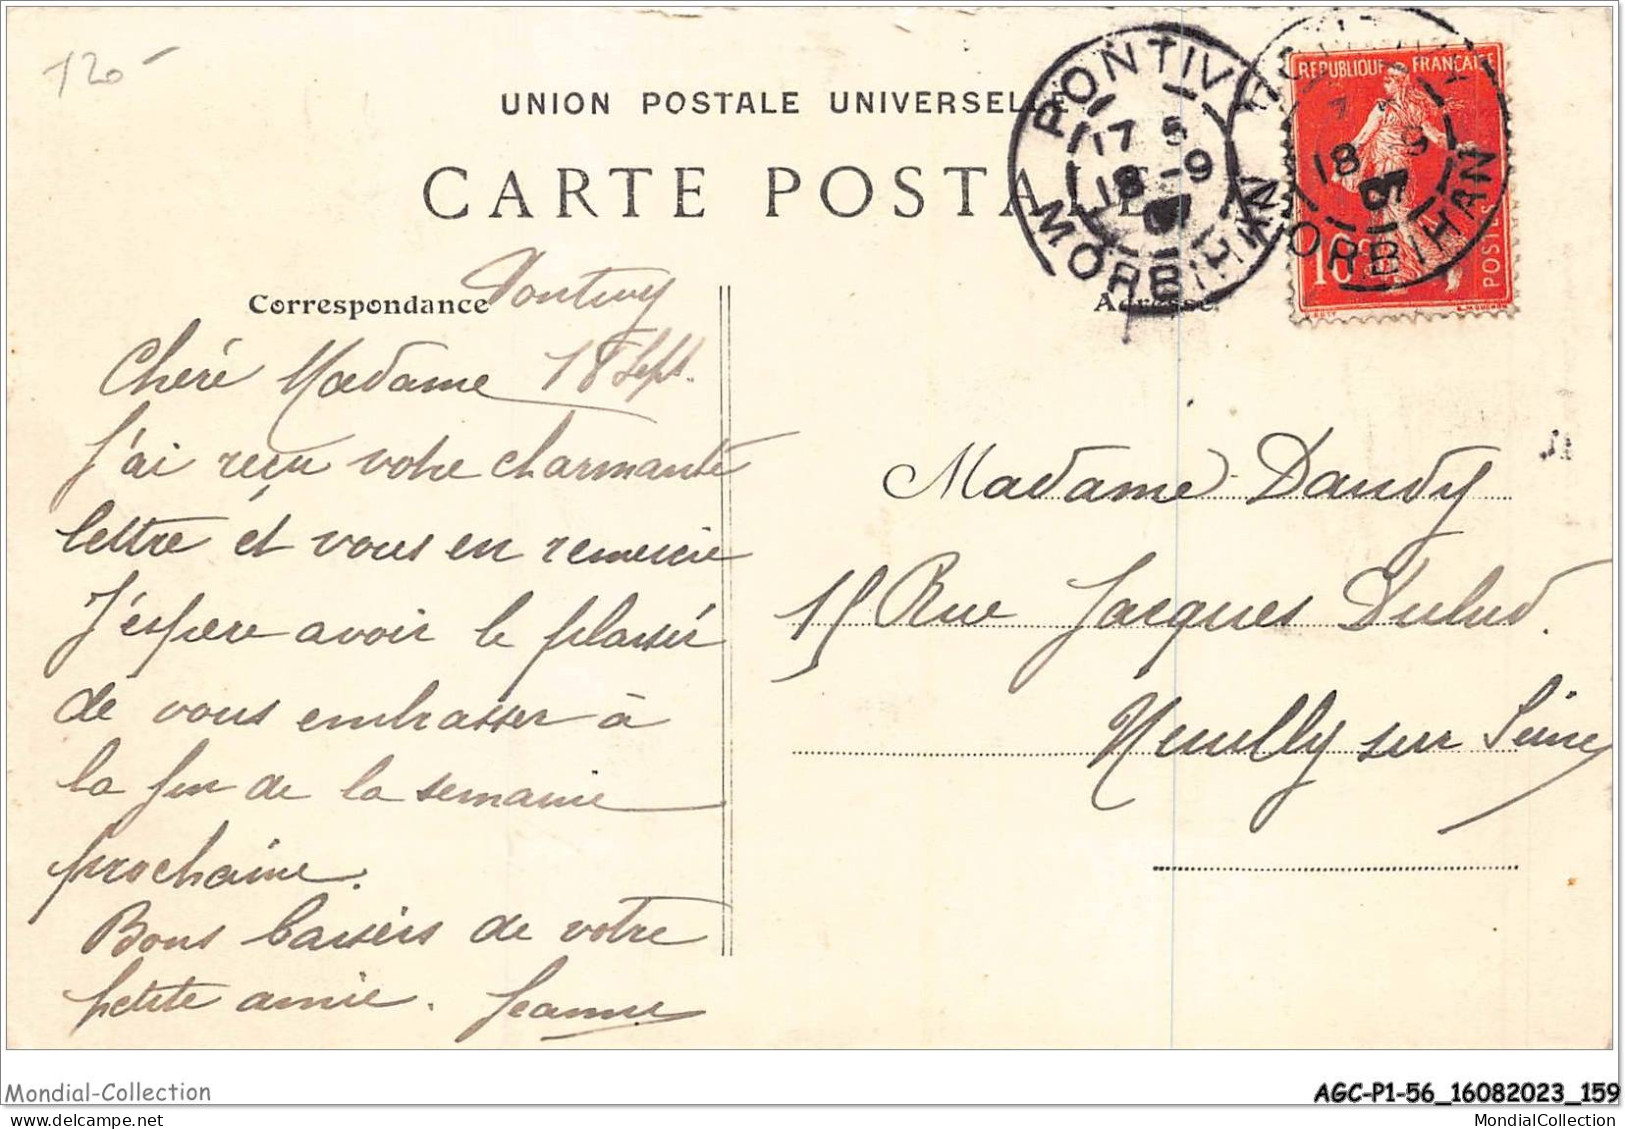 120-
UNION POSTALE UNIVERSELLE
CARTE POSTALE
PONTIVY
17 5
18 -9
07
MORBIHAN
18 9
07
MORBIHAN
REPUBLIQUE FRANÇAISE
10c
POSTES
Correspondance
Adresse
Pontivy
18 Sept.
Chère Madame
J'ai reçu votre charmante
lettre et vous en remercie
J'espère avoir le plaisir
de vous embrasser à
la fin de la semaine
prochaine.
Bons baisers de votre
petite amie. Jeanne
Madame Dandy
15 Rue Jacques Dulud.
Neuilly sur Seine
Mondial-Collection
AGC-P1-56_16082023_159
MondialCollection